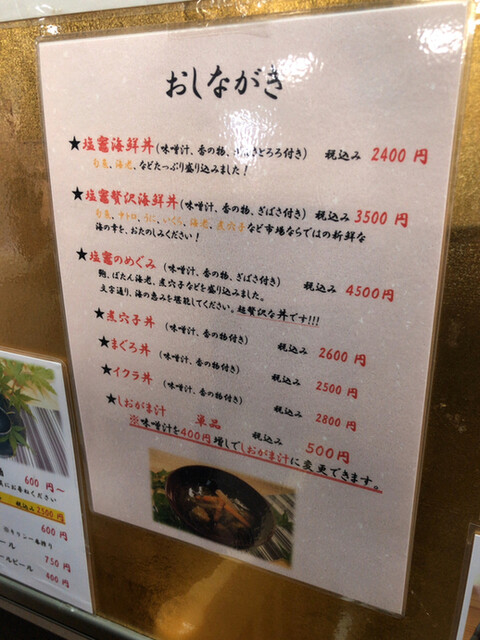 おしながき
★塩竈海鮮丼(味噌汁、香の物、ぎばさとろろ付き) 税込み 2400円
旬魚、海老、などたっぷり盛り込みました！
★塩竈贅沢海鮮丼(味噌汁、香の物、ぎばさ付き) 税込み 3500円
旬魚、中トロ、うに、いくら、海老、煮穴子など市場ならではの新鮮な
海の幸を、おたのしみください！
★塩竈のめぐみ (味噌汁、香の物、ぎばさ付き) 税込み 4500円
鮑、ぼたん海老、煮穴子などを盛り込みました。
文字通り、海の恵みを堪能してください。超贅沢な丼です!!!
★煮穴子丼 (味噌汁、香の物付き) 税込み 2600円
★まぐろ丼 (味噌汁、香の物付き) 税込み 2500円
★イクラ丼 (味噌汁、香の物付き) 税込み 2800円
★しおがま汁 単品 税込み 500円
※味噌汁を400円増しでしおがま汁に変更できます。
600円～
にお尋ねください
税込み 2500円
600円
※キリン一番搾り
ール 750円
ールビール 400円